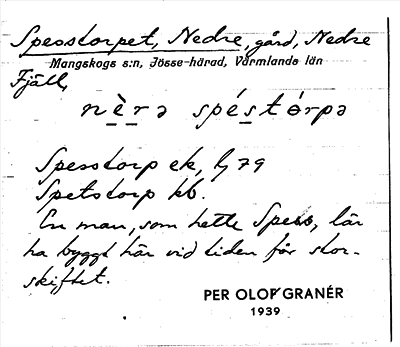 Spesstorpet, Nedre, gård, Nedre
Mangskogs s:n, Jösse-härad, Värmlands län
Fjäll,
nèrə spéstórpə
Spesstorp ek, G 79
Spetstorp kb.
En man, som hette Spess, lär
ha byggt här vid tiden för stor-
skiftet.
PER OLOF GRANÉR
1939